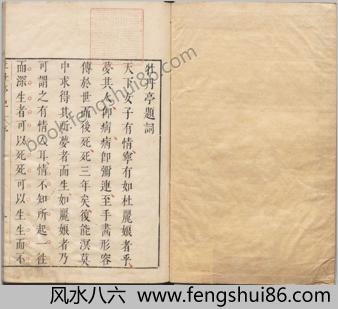 牡丹亭題詞
天下女子有情寧有如杜麗娘者乎
夢其人即病病即彌連至手畫形容
傳於世而後死死三年矣復能溟莫
中求得其所夢者而生如麗娘者乃
可謂之有情人耳情不知所起一往
而深生者可以死死可以生生而不
book.fengshui86.com
风水八六 www.fengshui86.com